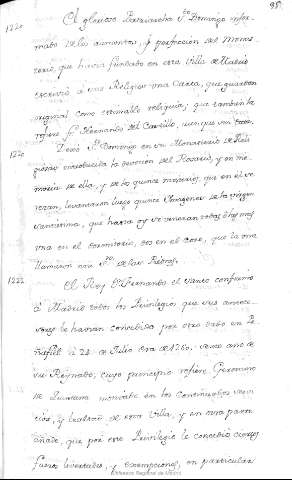 98
1220 El glorioso Patriarcha Sto Domingo infor-
mado de los aumentos, y perfeccion del Monas-
terio, que havia fundado en esta Villa de Madrid
escrivió a sus Religiosas una Carta, que guardan
original como estimable reliquia; que tambien la
refiere Fr. Hernando del Castillo, aunque sin fecha.
1220 Dexó Sto Domingo en su Monasterio de Reli-
giosas introducida la devocion del Rosario, y en me-
moria de ella, y de los quince misterios, que en él se
rezan, levantaron luego quince Imagenes de la virgen
santissima, que hasta oy se veneran todas
una en el dormitorio, dos en el coro, que la una
llamaron
1222 El Rey Dn Fernando el santo confirmó
á Madrid todos los Privilegios que sus antece-
sores le havian concedido por otro dado en Pe-
ñafiel á 24 de Julio era de 1260. año de
su Reynado; cuyo principio refiere Geronimo
de Quintana
y lealtad de esta Villa, y en otra parte
añade, que por este Privilegio le concedió ciertos
fueros, livertades, y exempciones, en particular
Biblioteca Regional de Madrid